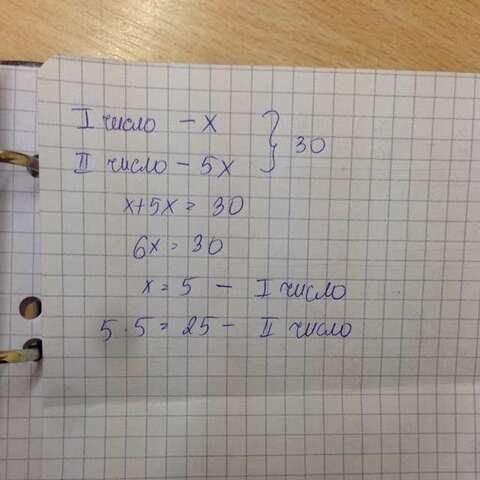 I число - x } 30
II число - 5x
x+5x = 30
6x = 30
x = 5 - I число
5 · 5 = 25 - II число